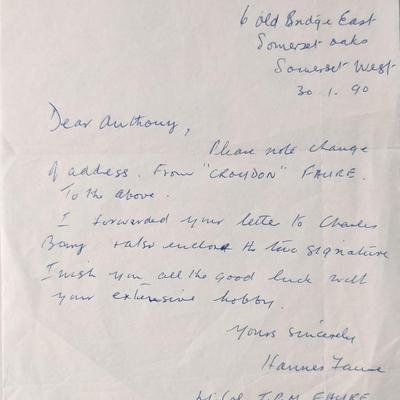 6 old Bridge East
Somerset oaks
Somerset West
30.1.90
Dear Anthony,
Please note change
of address. From "CROYDON" FAURE.
To the above.
I forwarded your lette to Charles
+ also enclose the two signature
I wish you all the good luck with
your extensive hobby.
Yours sincerely
Hannes Faure
Lt Col J.P.M. FAURE